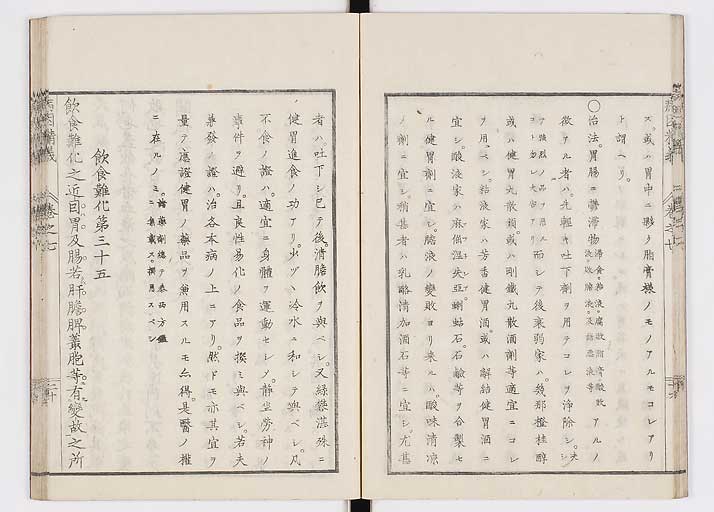 ス或ハ胃中ニ夥多脂膏様ノモノアルモコレアリ
ト謂ヘリ
〇治法胃腸ニ鬱滞物アルノ
徴アル者ハ先輕キ吐下劑ヲ用テコレヲ浄除シ
而シテ後衰弱家ハ幾那橙桂醇
或ハ健胃丸散類或ハ剛鐵丸散酒劑等適宜ニコレ
ヲ用ベシ粘液家ハ芳香健胃酒或ハ解結健胃酒ニ
宜シ酸液家ハ麻倔涅失亞蜊蛄石石鹼等ヲ合製セ
ル健胃劑ニ宜シ膽液ノ變敗ヨリ来ルハ酸味清凉
ノ劑ニ宜シ稍甚者ハ乳酪清加酒石等ニ宜シ尤甚
者ハ吐下シ已テ後清膽飲ヲ與ベシ又緑礬湛殊ニ
健胃進食ノ功アリ少ヅヽ冷水ニ和シテ與ベシ凡
不食ノ證ハ適宜ニ身體ヲ運動セシメ静坐労神ノ
事件ヲ避リ且良性易化ノ食品ヲ撰ミ與ベシ若夫
兼發ノ證ハ治各本病ノ上ニアリ然ドモ亦其宜ヲ
量テ應證健胃ノ藥品ヲ兼用スルモ亦得是醫ノ權
ニ在ルノミ
飲食難化第三十五
飲食難化之近因胃及腸若肝膽脾叢胞等有變故之所